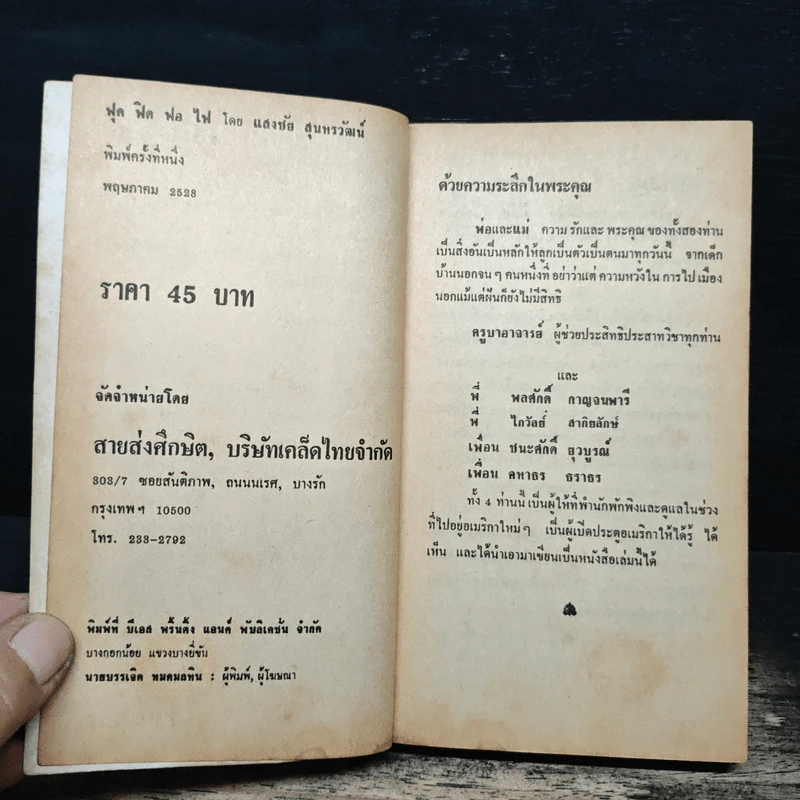 ฟุด ฟิด ฟอ ไฟ โดย แสงชัย สุนทรวัฒน์
พิมพ์ครั้งที่หนึ่ง
พฤษภาคม 2528
ราคา 45 บาท
จัดจำหน่ายโดย
สายส่งศึกษิต, บริษัทเคล็ดไทยจำกัด
303/7 ซอยสันติภาพ, ถนนนเรศ, บางรัก
กรุงเทพฯ 10500
โทร. 233-2792
พิมพ์ที่ บีเอส พริ้นติ้ง แอนด์ พับลิเคชั่น จำกัด
บางกอกน้อย แขวงบางยี่ขัน
นายบรรเจิด หมดมลทิน : ผู้พิมพ์, ผู้โฆษณา
ด้วยความระลึกในพระคุณ
พ่อและแม่ ความ รักและ พระคุณ ของทั้งสองท่าน
เป็นสิ่งอันเป็นหลักให้ลูกเป็นตัวเป็นตนมาทุกวันนี้ จากเด็ก
บ้านนอกจน ๆ คนหนึ่งที่ อย่าว่าแต่ ความหวังใน การไป เมือง
นอกแม้แต่ฝันก็ยังไม่มีสิทธิ
ครูบาอาจารย์ ผู้ช่วยประสิทธิประสาทวิชาทุกท่าน
และ
พี่ พลศักดิ์ กาญจนพารี
พี่ ไกวัลย์ สากิยลักษ์
เพื่อน ชนะศักดิ์ ยุวบูรณ์
เพื่อน คหาธร ธราธร
ทั้ง 4 ท่านนี้ เป็นผู้ให้ที่พำนักพักพิงและดูแลในช่วง
ที่ไปอยู่อเมริกาใหม่ๆ เป็นผู้เปิดประตูอเมริกาให้ได้รู้ ได้
เห็น และได้นำเอามาเขียนเป็นหนังสือเล่มนี้ได้